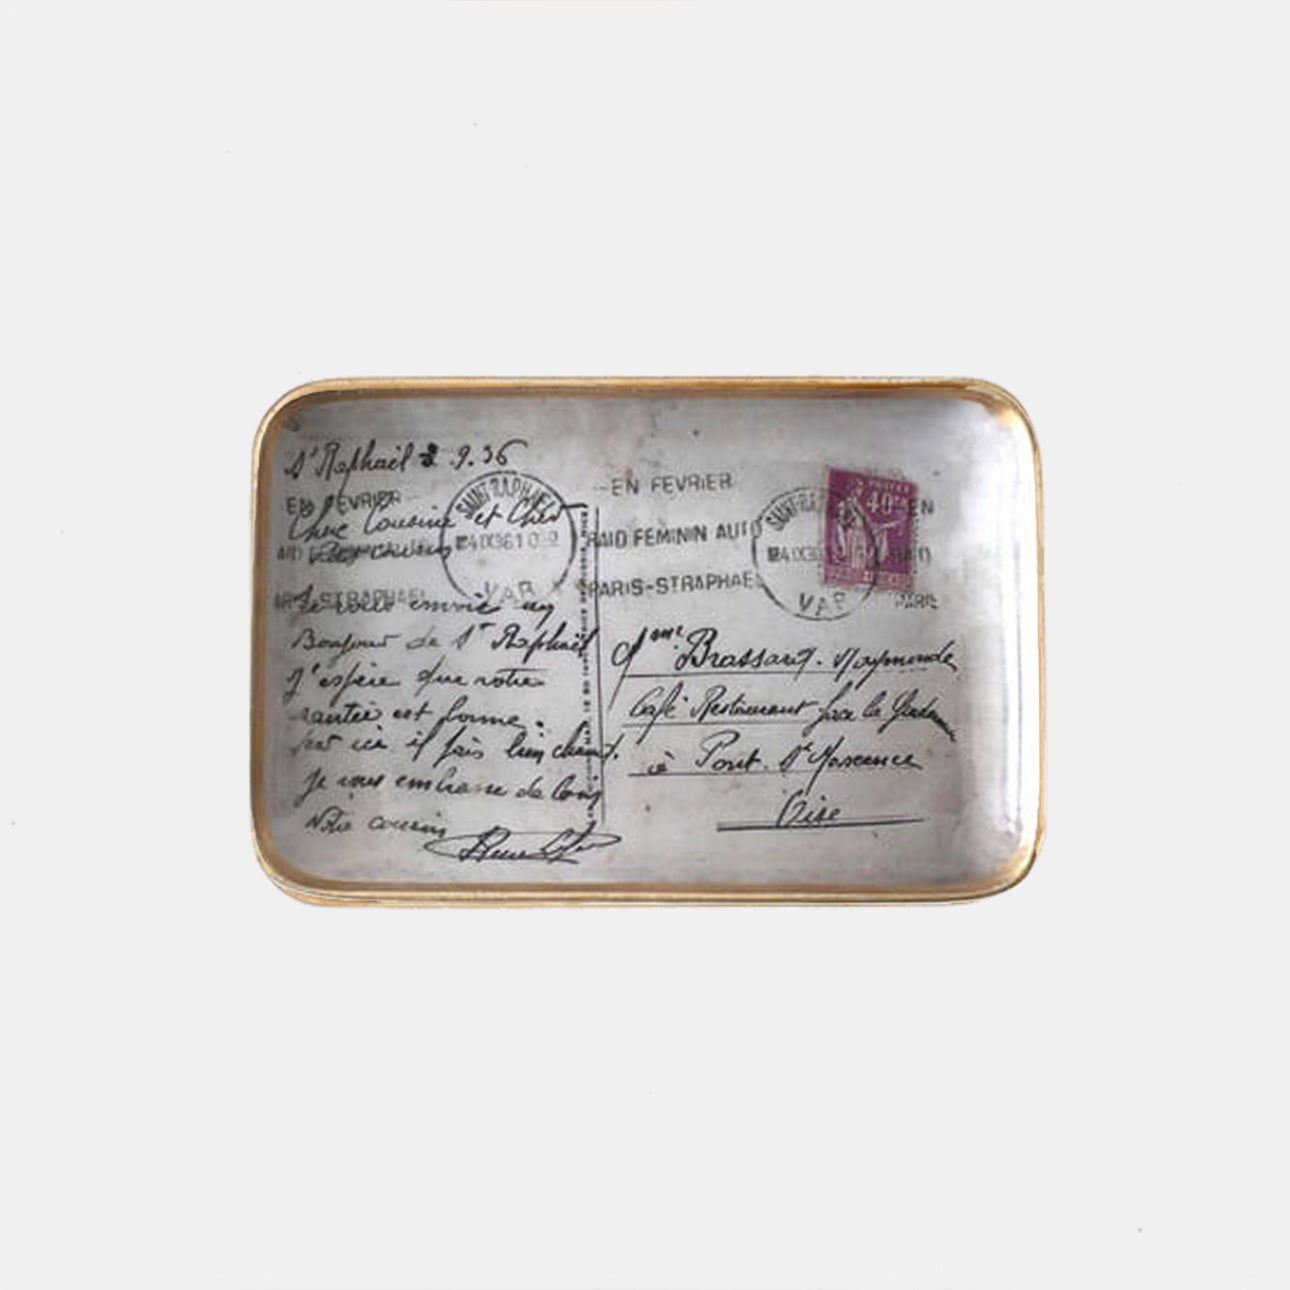 St Raphaël 3.9.36
EN FEVRIER
Chère Cousine et Cher
Petit cousin
Je vous envoie un
Bonjour de St Raphaël
J'espère que votre
santée est bonne.
par ici il fais bien chaud.
Je vous embrasse de loin
Votre cousin
SAINT-RAPHAEL
4 IX 36 10
VAR
EN FEVRIER
RAID FEMININ AUTO
PARIS-ST RAPHAEL
SAINT-RA
4 IX 36
VAR
40
EN
RAID
PARIS
Mme Brassard. Raymonde
Café Restaurant face la
à Pont. Ste Maxence
Oise